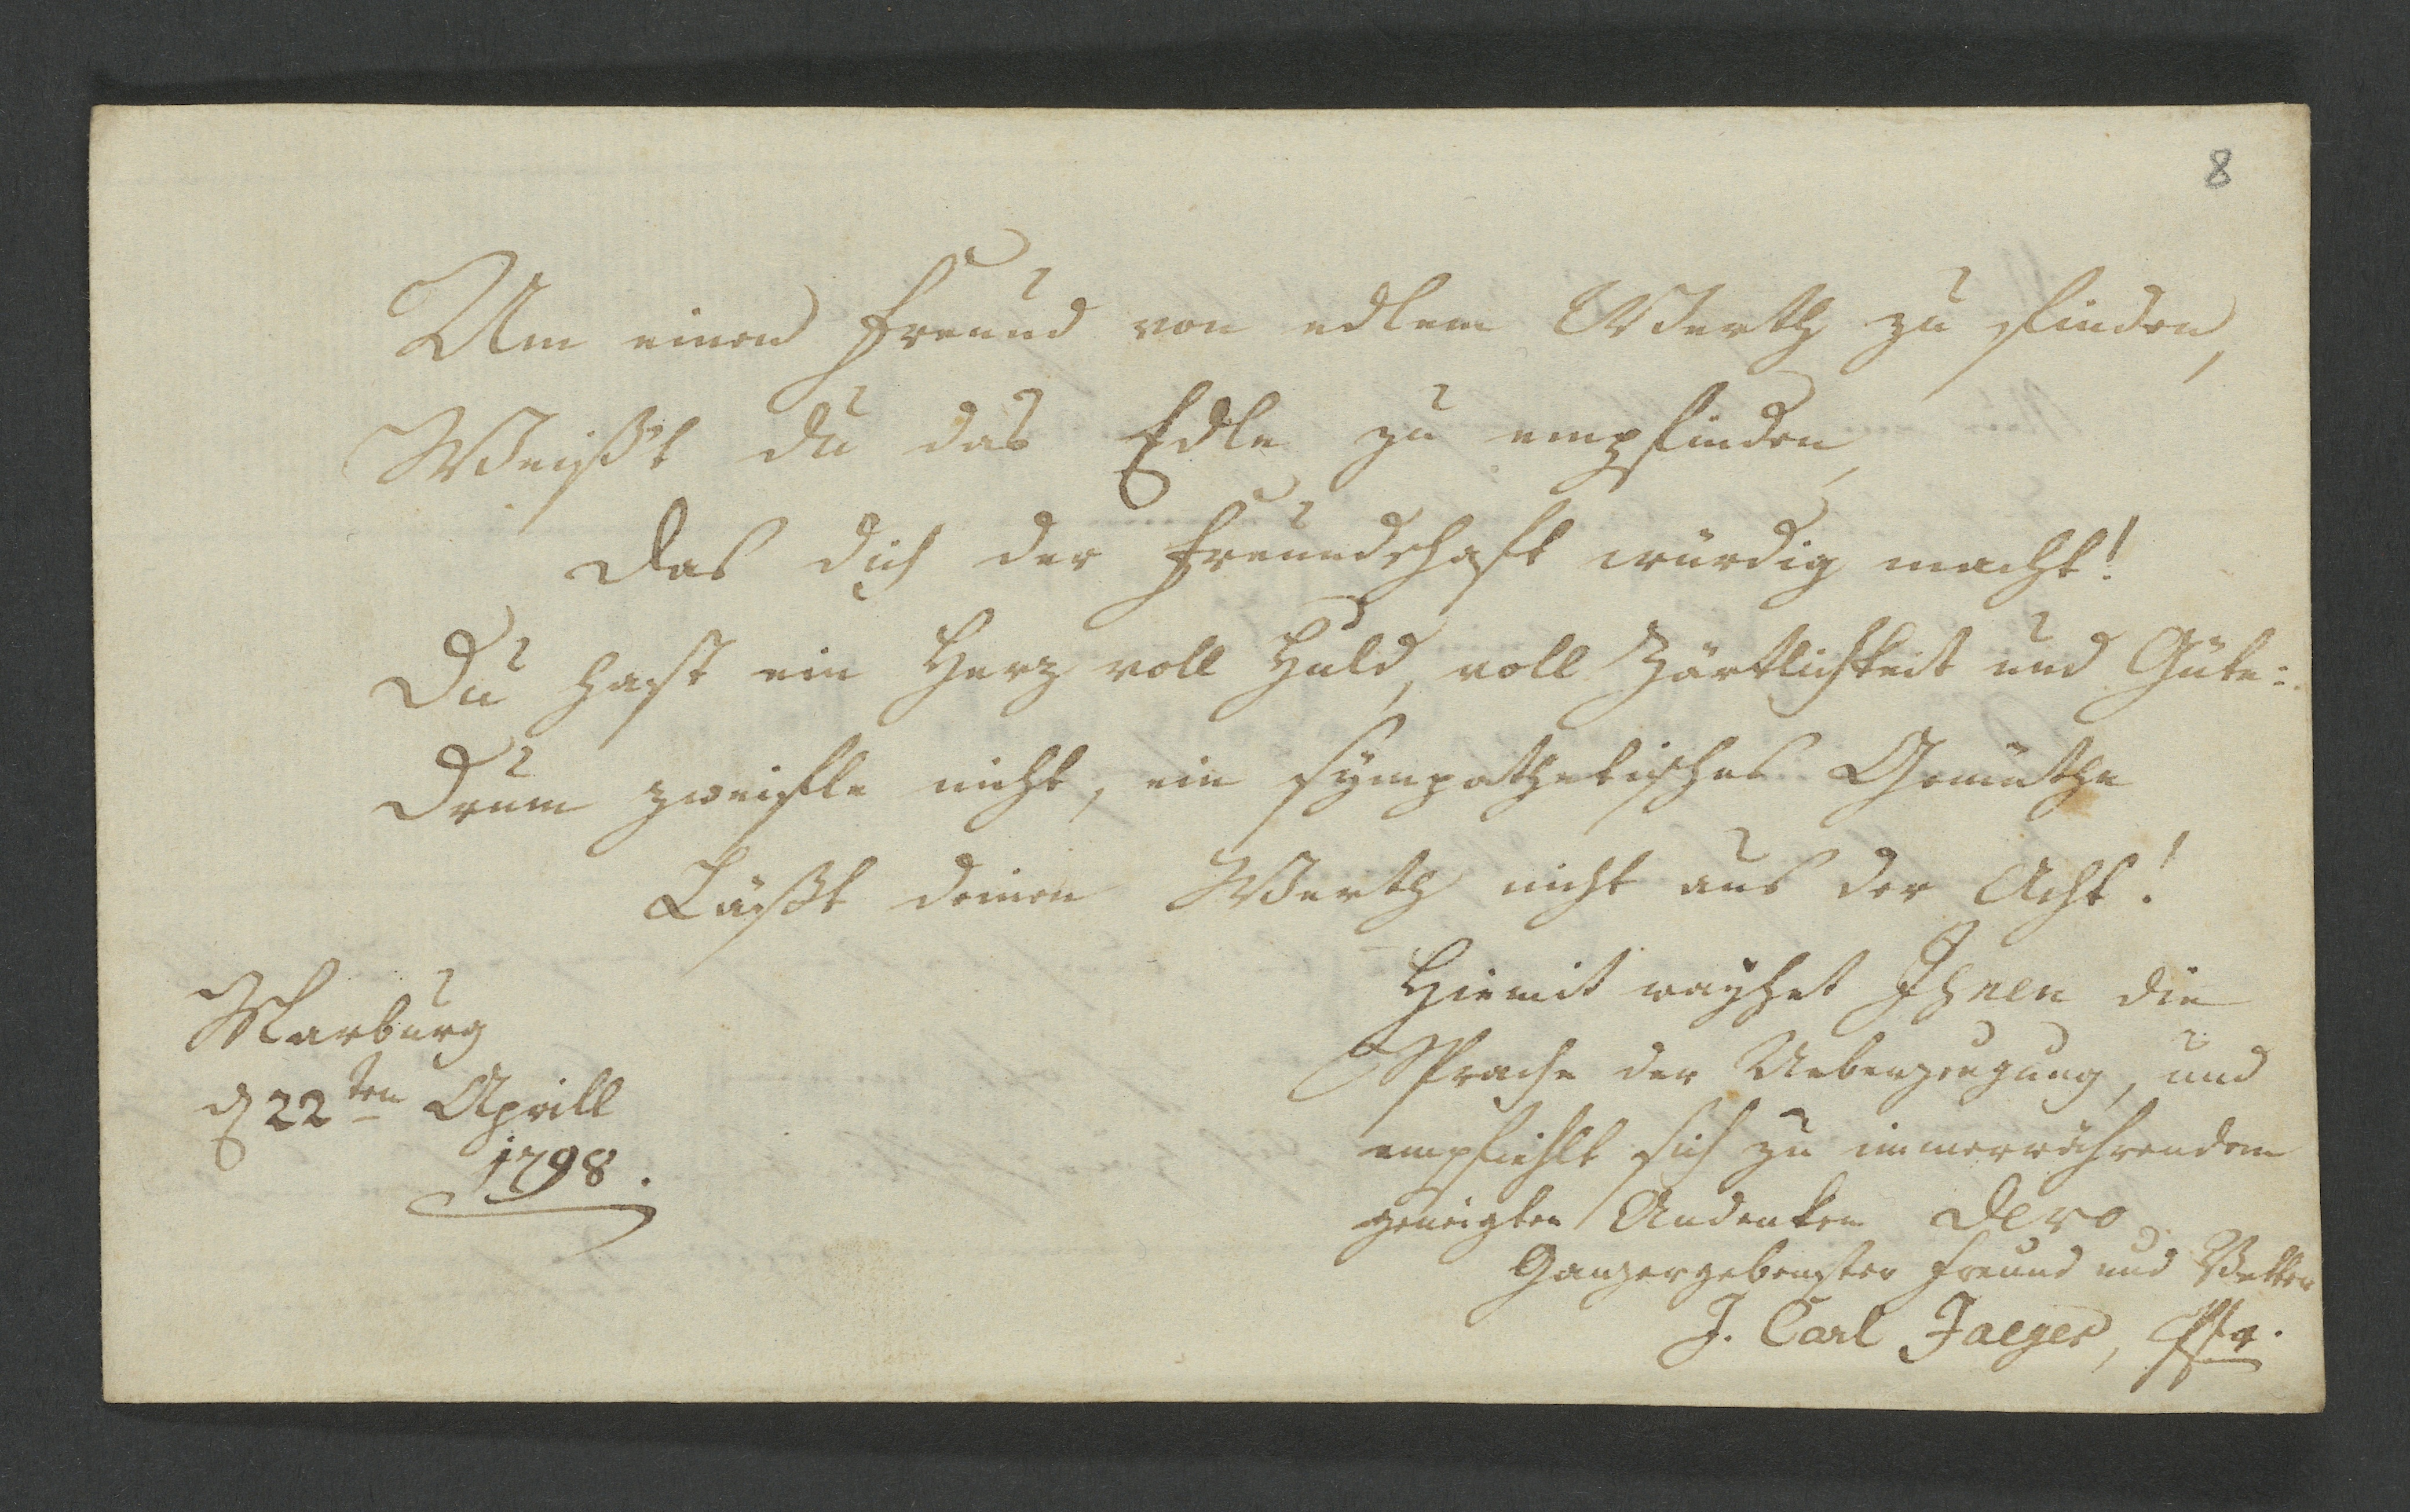 8
Um einen Freund von edlem Werth zu finden,
Weißt du das Edle zu empfinden,
Das dich der Freundschaft würdig macht!
Du hast ein Herz voll Huld, voll Zärtlichkeit und Güte:
Drum zweifle nicht, ein sympathetisches Gemüthe
Läßt deinen Werth nicht aus der Acht!
Marburg
d 22ten Aprill
1798.
Hiemit weyhet Ihnen die
Sprache der Ueberzeugung, und
empfiehlt sich zu immerwährendem
geneigten Andenken Dero
Ganzergebenster Freund und Vetter
J. Carl Jaeger, Pfr.